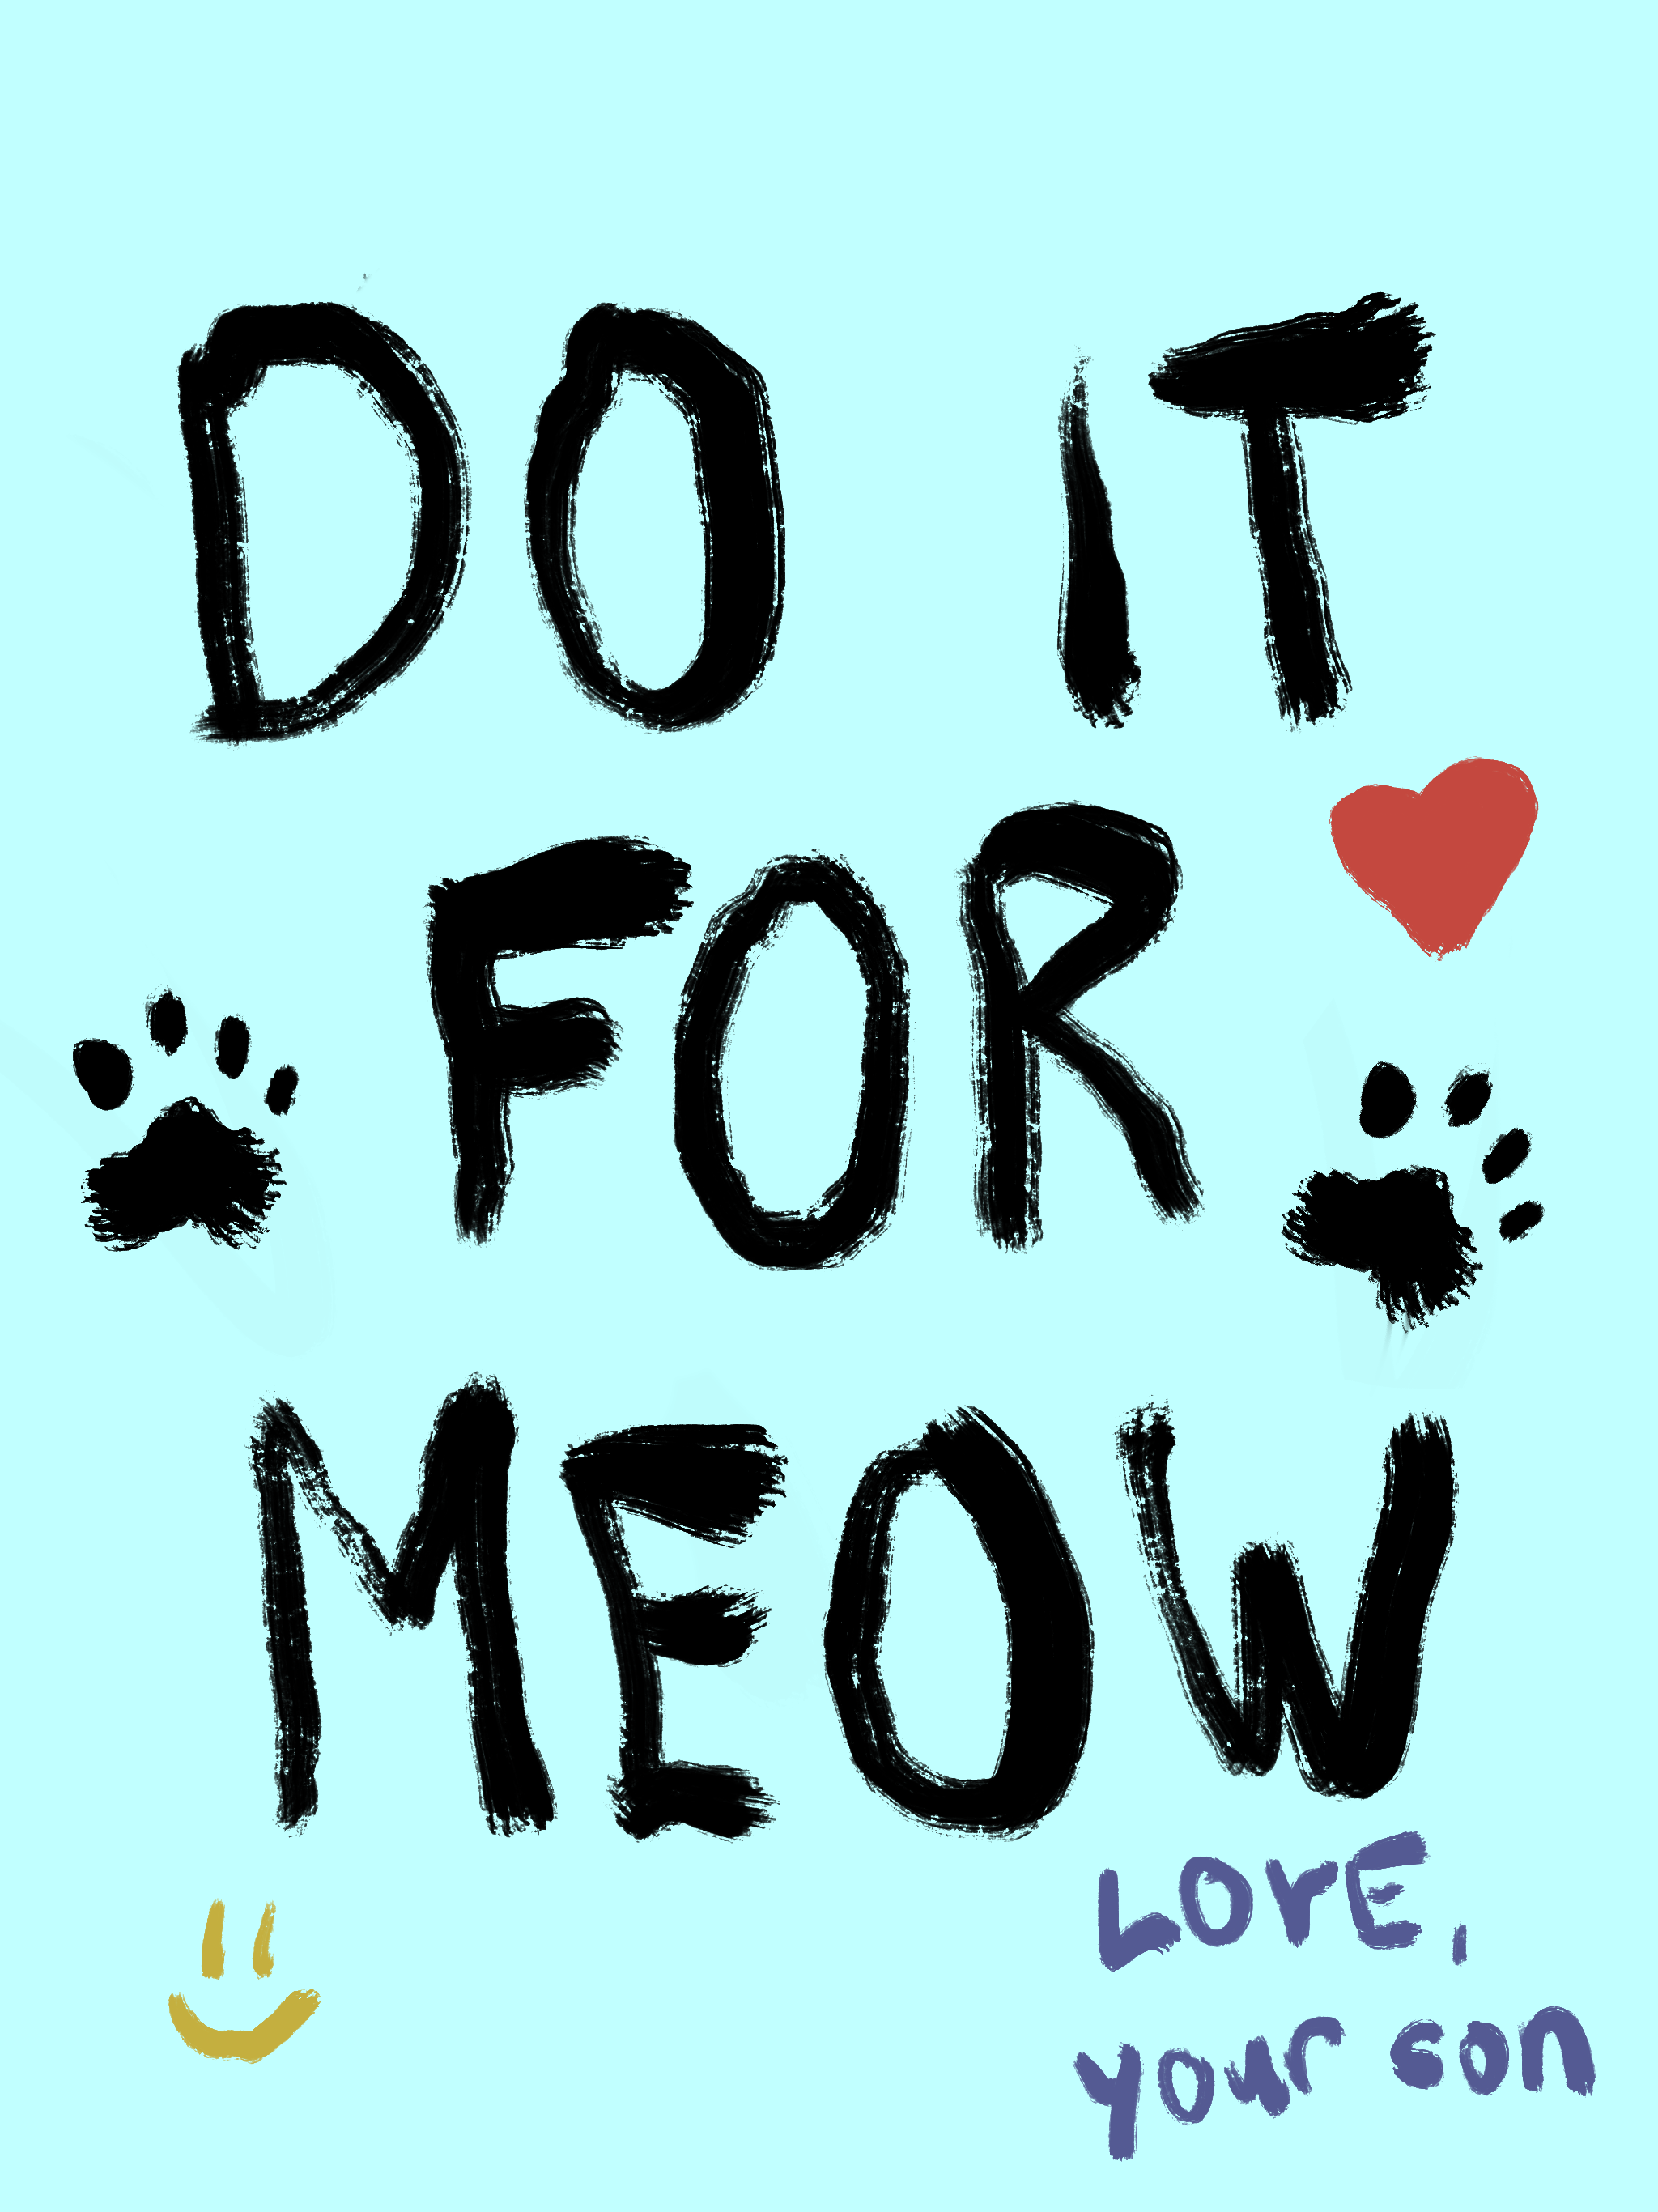 DO IT
FOR
MEOW
LOVE,
your son